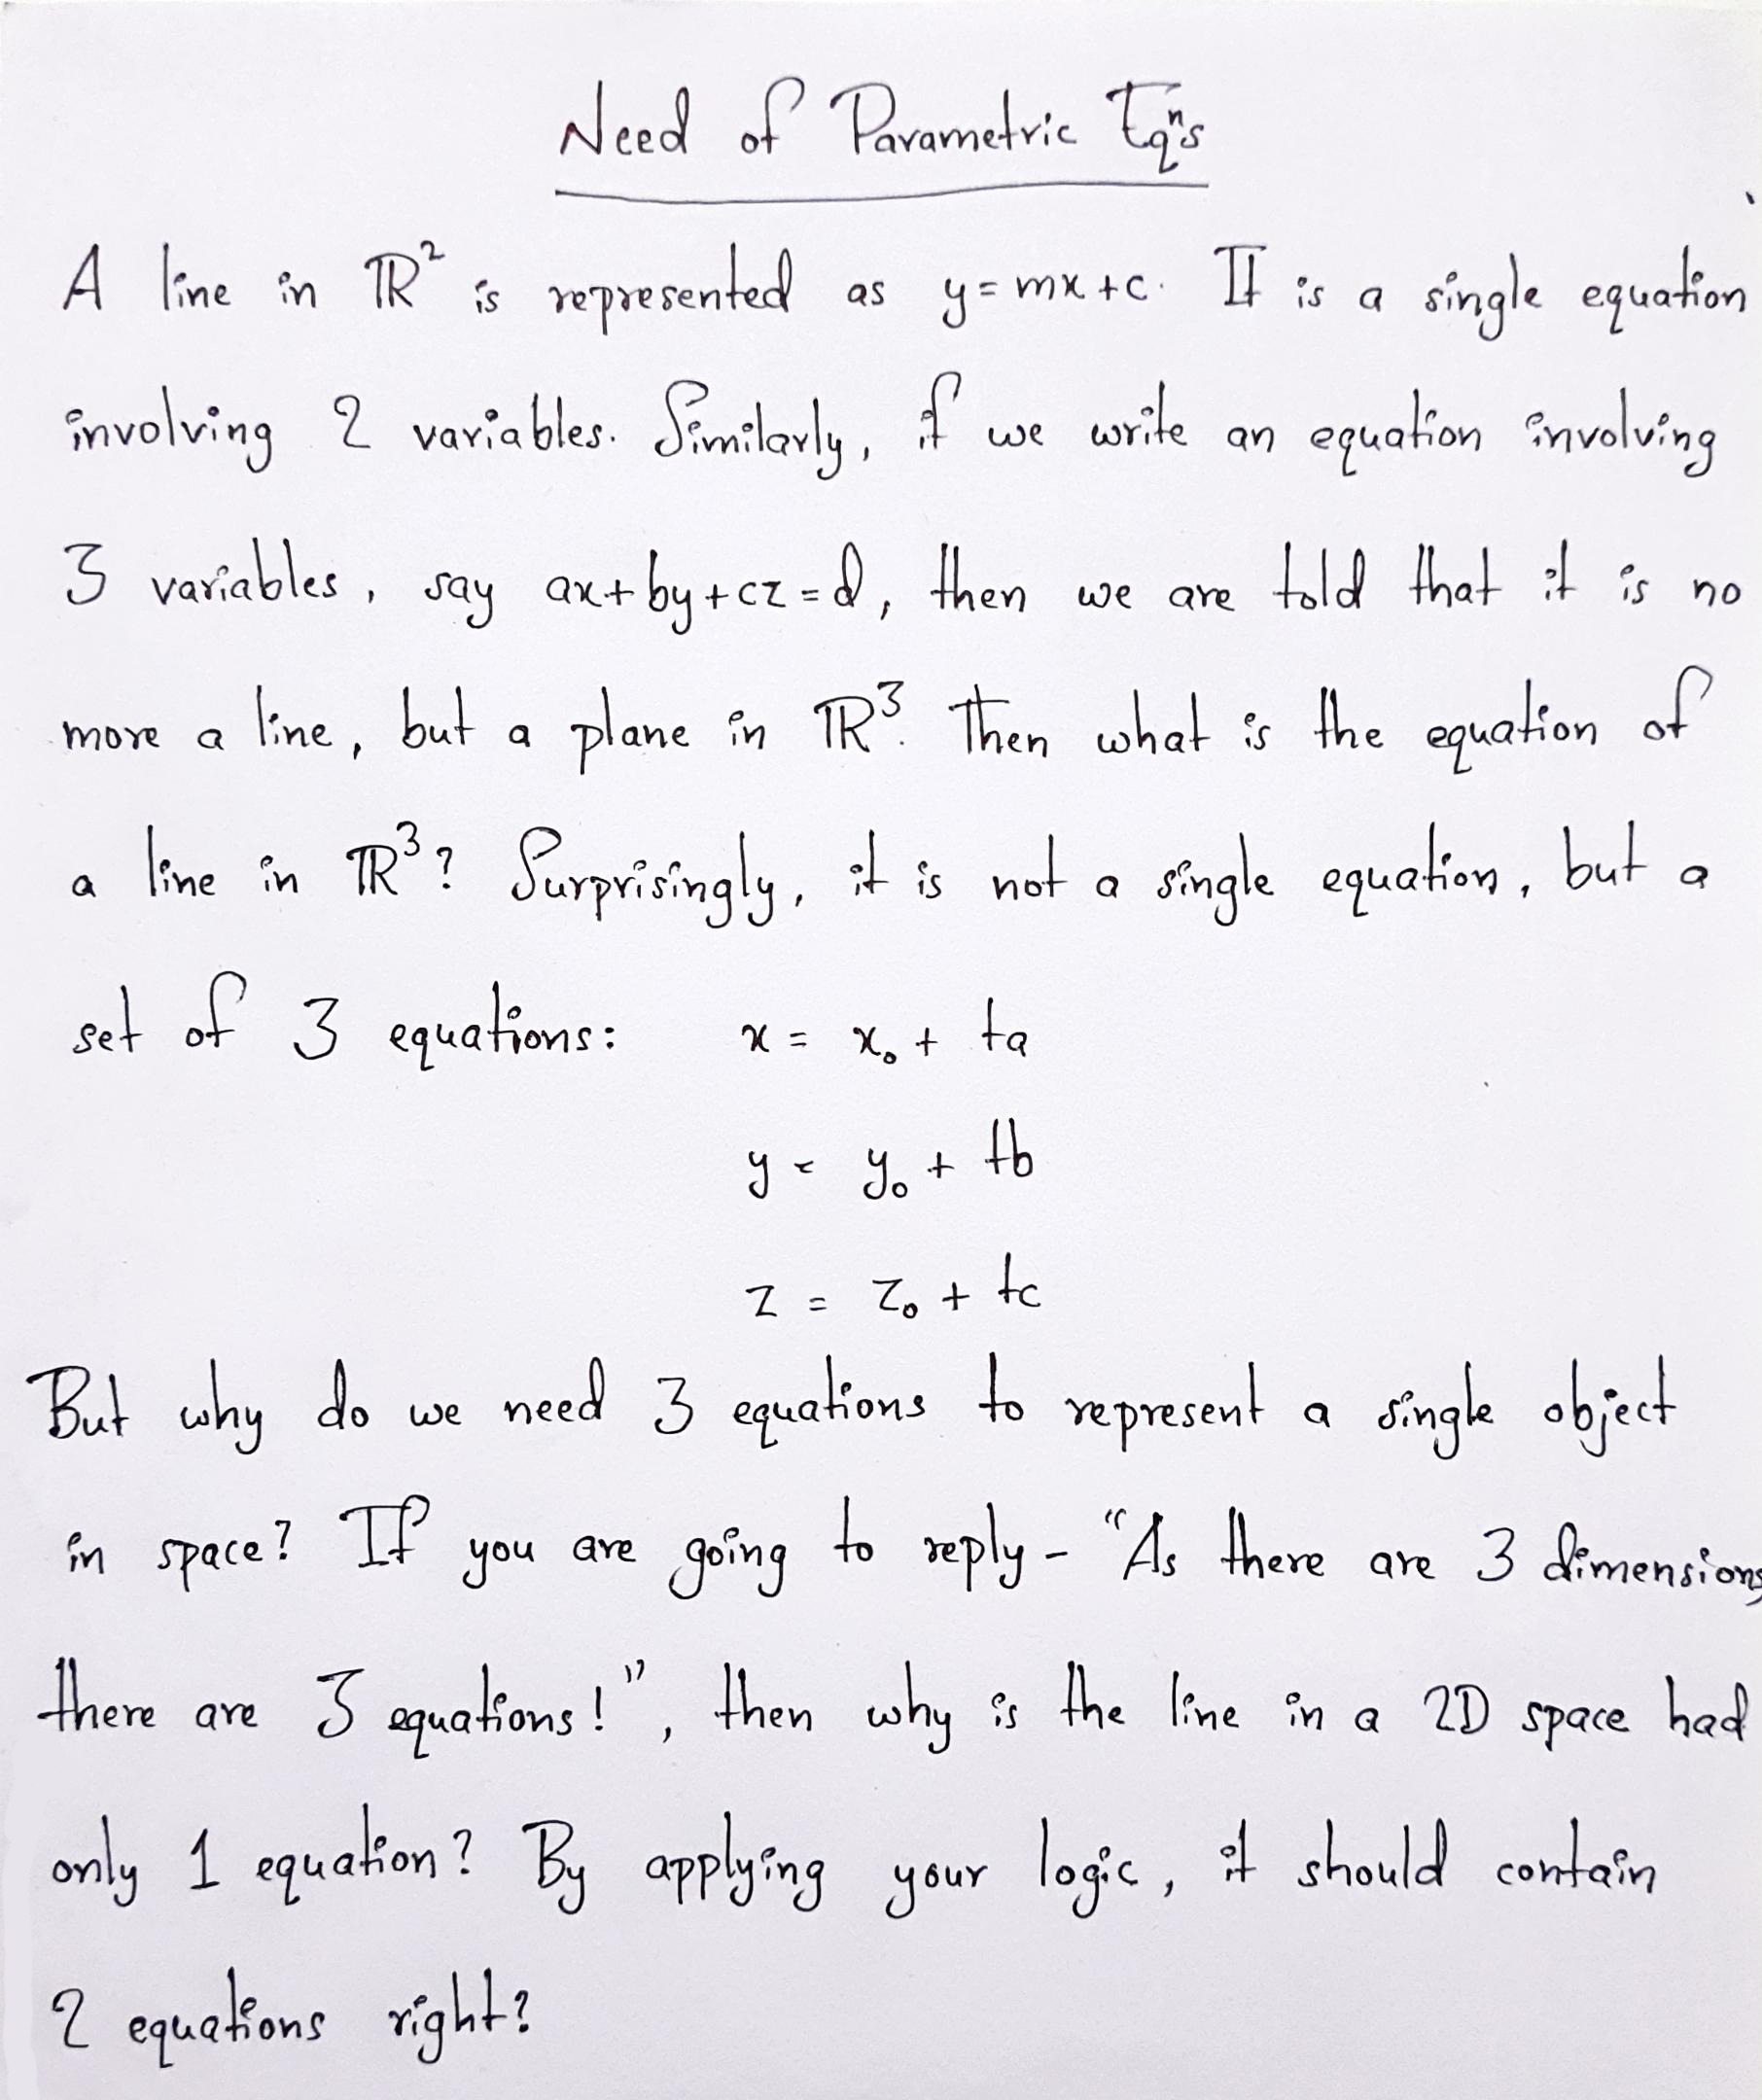 Need of Parametric Eqⁿs
A line in ℝ² is represented as y = mx + c. It is a single equation
involving 2 variables. Similarly, if we write an equation involving
3 variables, say ax + by + cz = d, then we are told that it is no
more a line, but a plane in ℝ³. Then what is the equation of
a line in ℝ³? Surprisingly, it is not a single equation, but a
set of 3 equations: x = x₀ + ta
y = y₀ + tb
z = z₀ + tc
But why do we need 3 equations to represent a single object
in space? If you are going to reply - "As there are 3 dimensions
there are 3 equations!", then why is the line in a 2D space had
only 1 equation? By applying your logic, it should contain
2 equations right?